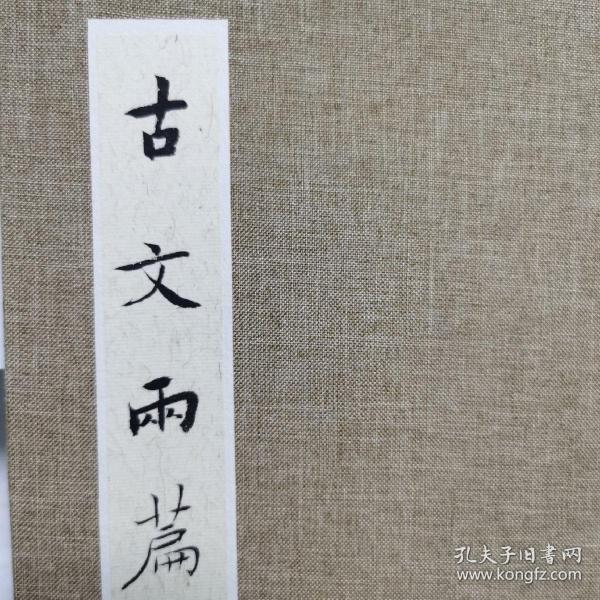 古文兩篇
孔夫子旧書网
www.kongfz.com